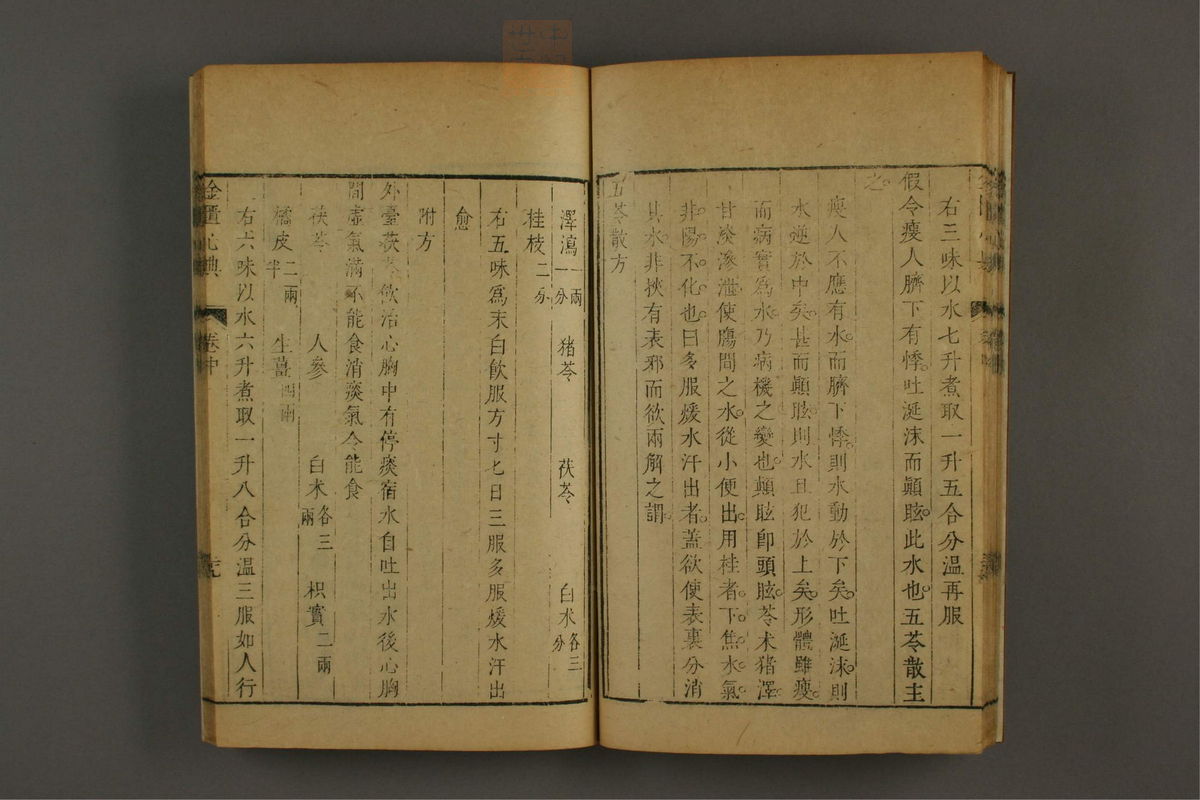 右三味以水七升煮取一升五合分溫再服
假令瘦人臍下有悸。吐涎沫而顚眩。此水也。五苓散主
之。
瘦人不應有水。而臍下悸。則水動於下矣。吐涎沫。則
水逆於中矣。甚而顚眩。則水且犯於上矣。形體雖瘦。
而病實爲水。乃病機之變也。顚眩卽頭眩。苓朮豬澤。
甘淡滲泄。使腸間之水。從小便出。用桂者。下焦水氣。
非陽。不化也。曰多服煖水汗出者。蓋欲使表裏分消
其水。非挾有表邪而欲兩解之謂。
五苓散方
澤瀉一兩一分 猪苓 茯苓 白朮各三分
桂枝二分
右五味爲末白飮服方寸匕日三服多服煖水汗出
愈
附方
外臺茯苓飮治心胸中有停痰宿水自吐出水後心胸
間虛氣滿不能食消痰氣令能食
茯苓 人參 白朮各三兩 枳實二兩
橘皮二兩半 生薑四兩
右六味以水六升煮取一升八合分溫三服如人行
金匱心典 卷中